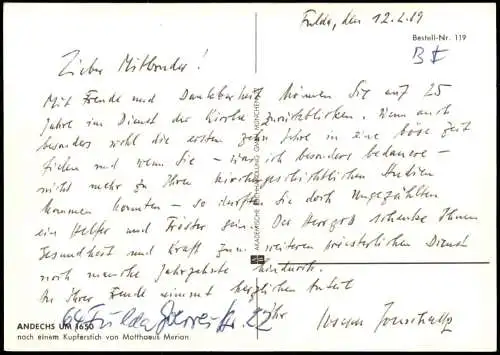 Fulda, den 12.2.69
Bestell-Nr. 119
Lieber Mitbruder!
Mit Freude und Dankbarkeit können Sie auf 25
Jahre im Dienst der Kirche zurückblicken. Wenn auch
besonders wohl die ersten zehn Jahre in eine böse Zeit
fielen und wenn Sie – was ich besonders bedauere –
nicht mehr zu Ihren kirchengeschichtlichen Studien
kommen konnten – so durften Sie doch Ungezählten
ein Helfer und Tröster sein. Der Herrgott schenke Ihnen
Gesundheit und Kraft zum weiteren priesterlichen Dienst
noch manche Jahrzehnte hindurch.
An Ihrer Freude nimmt herzlichen Anteil
Ihr
64 Fulda
22
ANDECHS UM 1650
nach einem Kupferstich von Matthaeus Merian
AKADEMISCHE BUCHHANDLUNG GMBH, MÜNCHEN